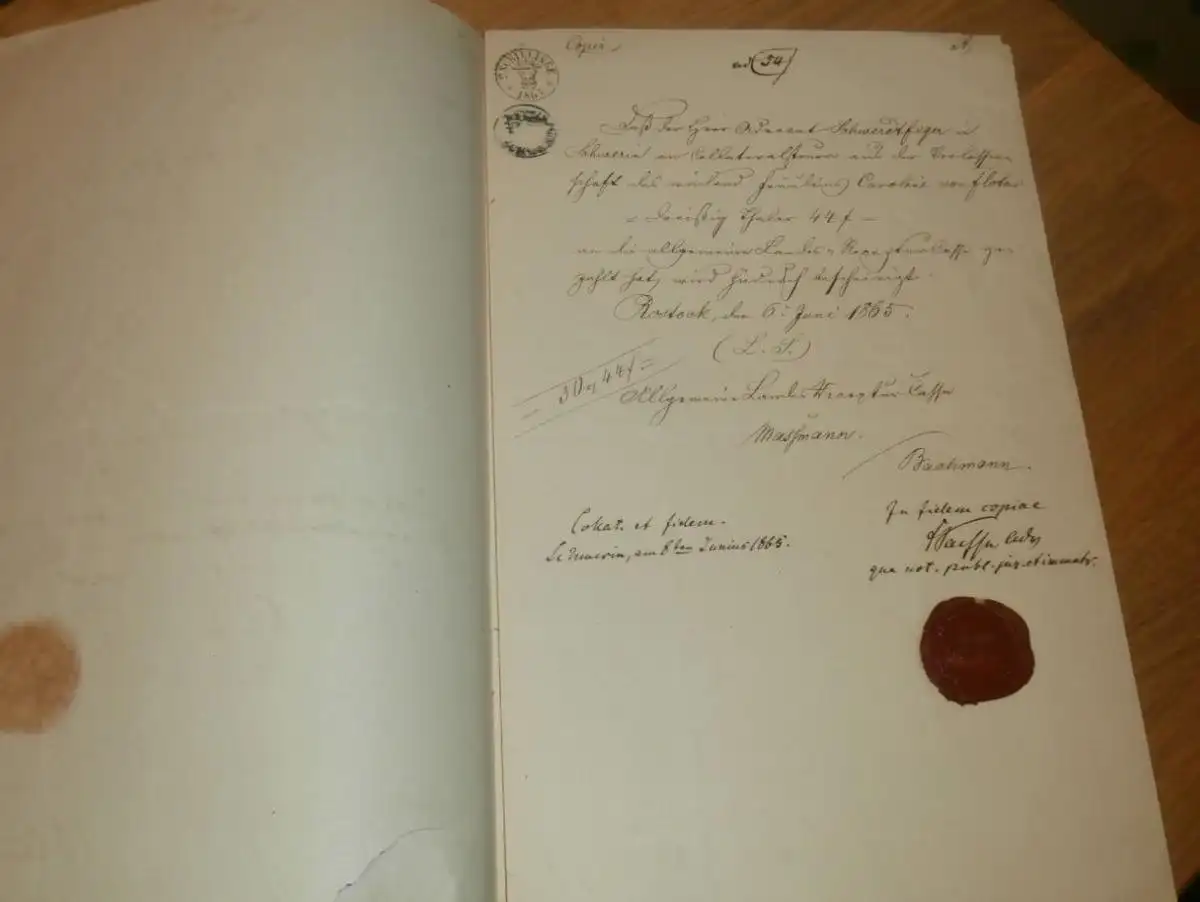 Copie
ad 54
Daß der Herr Advocat Schwerdtfeger in
Schwerin an Collateralsteuer aus der Verlassen-
schaft des weiland Fräuleins Caroline von Flotow
= Dreißig Thaler 44 ß =
an die allgemeine Landes-Receptur-Casse ge-
zahlt hat, wird hiedurch bescheinigt.
Rostock, den 6. Juni 1865.
(L. S.)
= 30 44 ß =
Allgemeine Landes Receptur-Casse
Massmann.
Bachmann.
In fidem copiae
Collat. et fidem.
Schwerin, am 8ten Junius 1865.
qua not. publ. jur. et immatr.